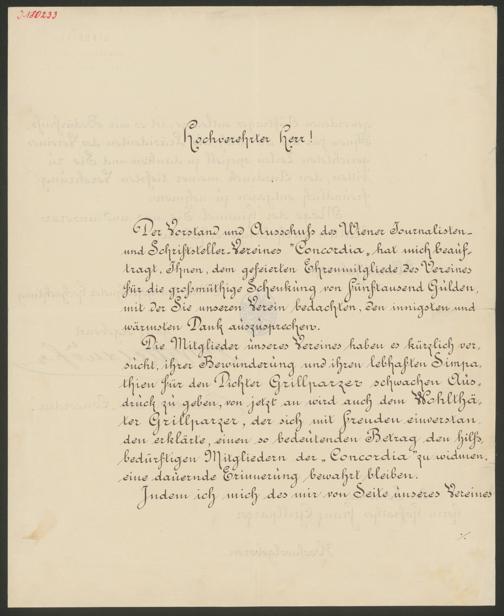 I.N. 180233
Hochverehrter Herr!
Der Vorstand und Ausschuss des Wiener Journalisten-
und Schriftsteller-Vereines "Concordia" hat mich beauf-
tragt, Ihnen, dem gefeierten Ehrenmitgliede des Vereines
für die grossmüthige Schenkung von fünftausend Gulden,
mit der Sie unseren Verein bedachten, den innigsten und
wärmsten Dank auszusprechen.
Die Mitglieder unseres Vereines haben es kürzlich ver-
sucht, ihrer Bewunderung und ihren lebhaften Simpa-
thien für den Dichter Grillparzer schwachen Aus-
druck zu geben, von jetzt an wird auch dem Wohlthä-
ter Grillparzer, der sich mit Freuden einverstan-
den erklärte, einen so bedeutenden Betrag den hilfs-
bedürftigen Mitgliedern der "Concordia" zu widmen,
eine dauernde Erinnerung bewahrt bleiben.
Indem ich mich des mir von Seite unseres Vereines
./.